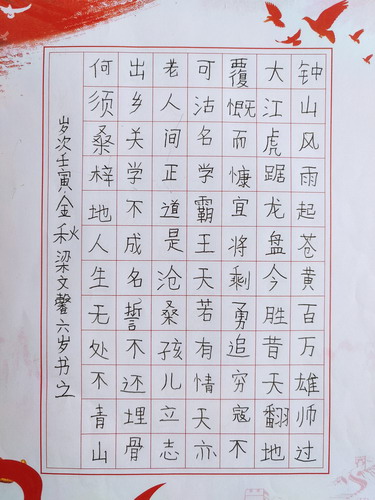 钟山风雨起苍黄百万雄师过
大江虎踞龙盘今胜昔天翻地
覆慨而慷宜将剩勇追穷寇不
可沽名学霸王天若有情天亦
老人间正道是沧桑孩儿立志
出乡关学不成名誓不还埋骨
何须桑梓地人生无处不青山
岁次壬寅金秋梁文馨六岁书之